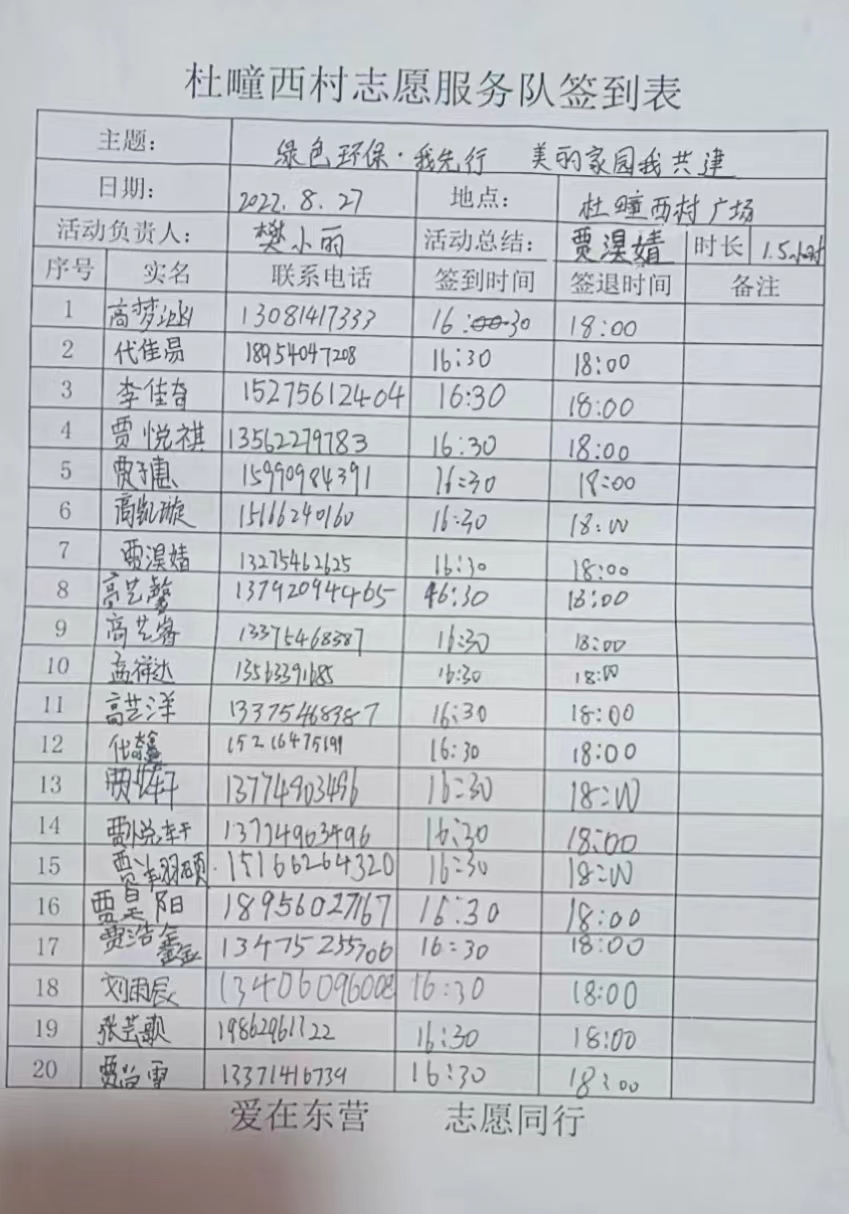 杜疃西村志愿服务队签到表
主题: 绿色环保·我先行 美的家园我共建
日期: 2022.8.27 地点: 杜疃西村广场
活动负责人: 樊小丽 活动总结: 贾淏婧 时长 1.5小时
序号 实名 联系电话 签到时间 签退时间 备注
1 高梦 13081417333 16:30 18:00
2 代佳易 18954047208 16:30 18:00
3 李佳奋 15275612404 16:30 18:00
4 贾悦祺 13562279783 16:30 18:00
5 贾子惠 15990984391 16:30 18:00
6 高凯璇 15166240160 16:30 18:00
7 贾淏婧 13275462625 16:30 18:00
8 高艺馨 13792094465 16:30 18:00
9 高艺睿 13375468387 16:30 18:00
10 孟祥达 13563391685 16:30 18:00
11 高芸洋 13375468387 16:30 18:00
12 代鑫 15216475199 16:30 18:00
13 贾轩 13774903496 16:30 18:00
14 贾悦轩 13774903496 16:30 18:00
15 贾翔硕 15166264320 16:30 18:00
16 贾昊阳 18956027167 16:30 18:00
17 贾浩鑫 13475255706 16:30 18:00
18 刘雨辰 13406096008 16:30 18:00
19 张芸歌 19862961722 16:30 18:00
20 贾尚雪 13371416739 16:30 18:00
爱在东营 志愿同行